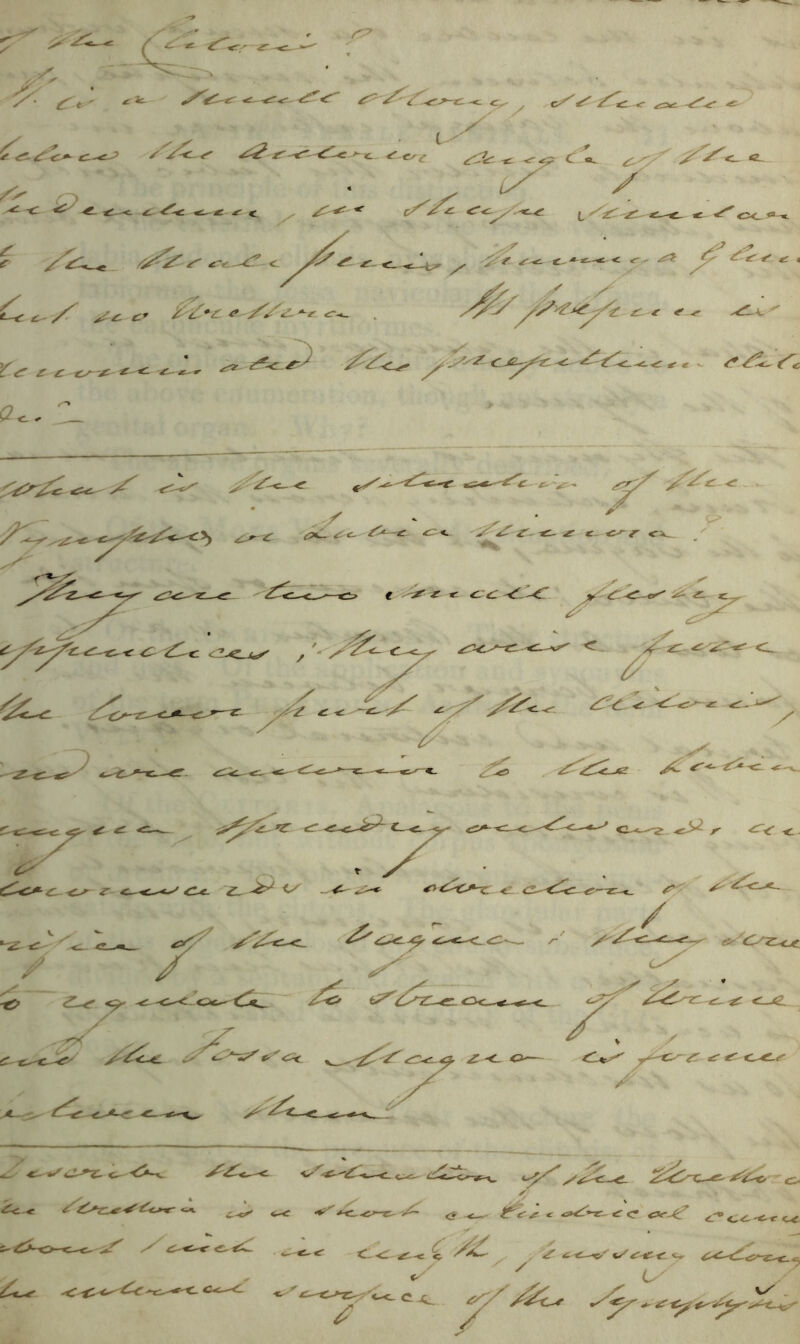 of the Clitoris?
It is a small body, situated
below the anterior angle of the
Pudendum, in its structure
to the male penis, having a Glans
but no Urethra. Its prepuce is
common and the prepuce
What is the situation of the
Nymphæ or Labia Minora?
They are two small fleshy
appendices; they arise from
the lower part of the Clitoris,
and are anterior to the Labia
spreading outwards,
downwards in direction of the
orifice of the Vagina; they serve
to regulate the stream of Urine
and the Fossa Magna is formed
between them
Describe the situation of the Urethra
the Urethra is a short cylindrical canal
about inch in length, passing along
the external surface of the Symphysis